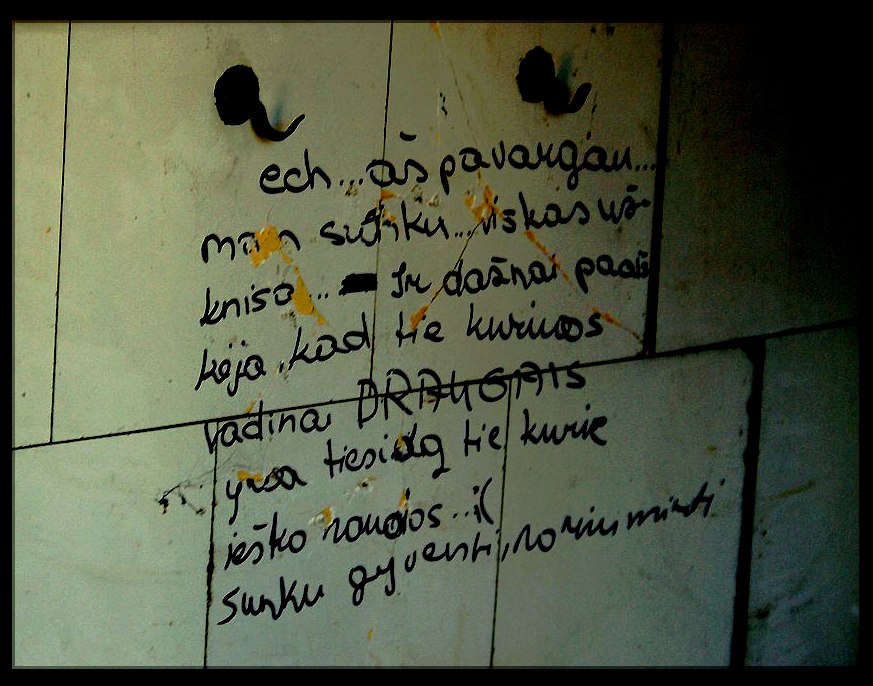 ech...aš pavargau...
man sunku...viskas už-
kniso... Ir dažnai paaiš
kėja, kad tie kuriuos
vadinai DRAUGAIS
yra tiesiog tie kurie
ieško naudos..;(
sunku gyventi, noriu mirti